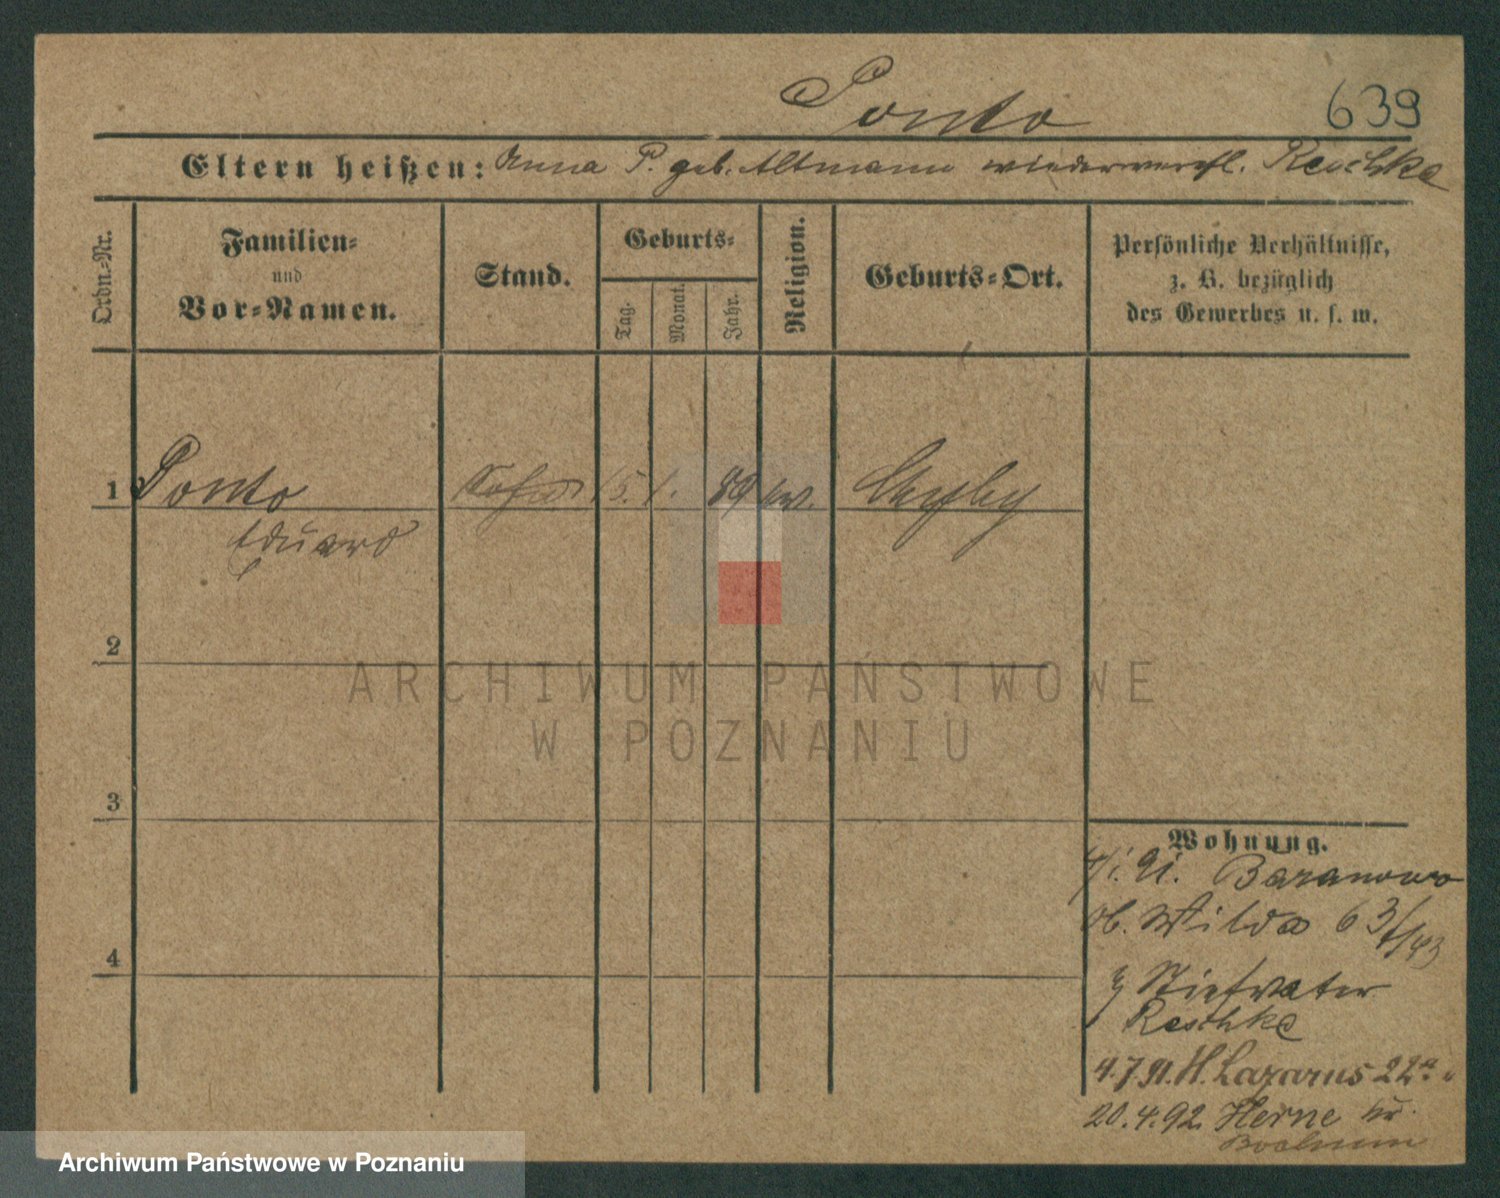 Ponto
639
Eltern heißen: Anna P. geb. Altmann wiederverehl. Reschke
Ordn.-Nr.
Familien-
und
Vor-Namen.
Stand.
Geburts-
Tag.
Monat.
Jahr.
Religion.
Geburts-Ort.
Persönliche Verhältnisse,
z. B. bezüglich
des Gewerbes u. s. w.
1 Ponto Sohn 15. 1. 89 ev.
Eduard
2
3
4
Wohnung.
91. Baranowo
Ob. Wilda 63
Stiefvater
Reschke
4.7.91. St. Lazarus 22a
20.4.92. Herne Kr.
Bochum
ARCHIWUM PAŃSTWOWE
W POZNANIU
Archiwum Państwowe w Poznaniu